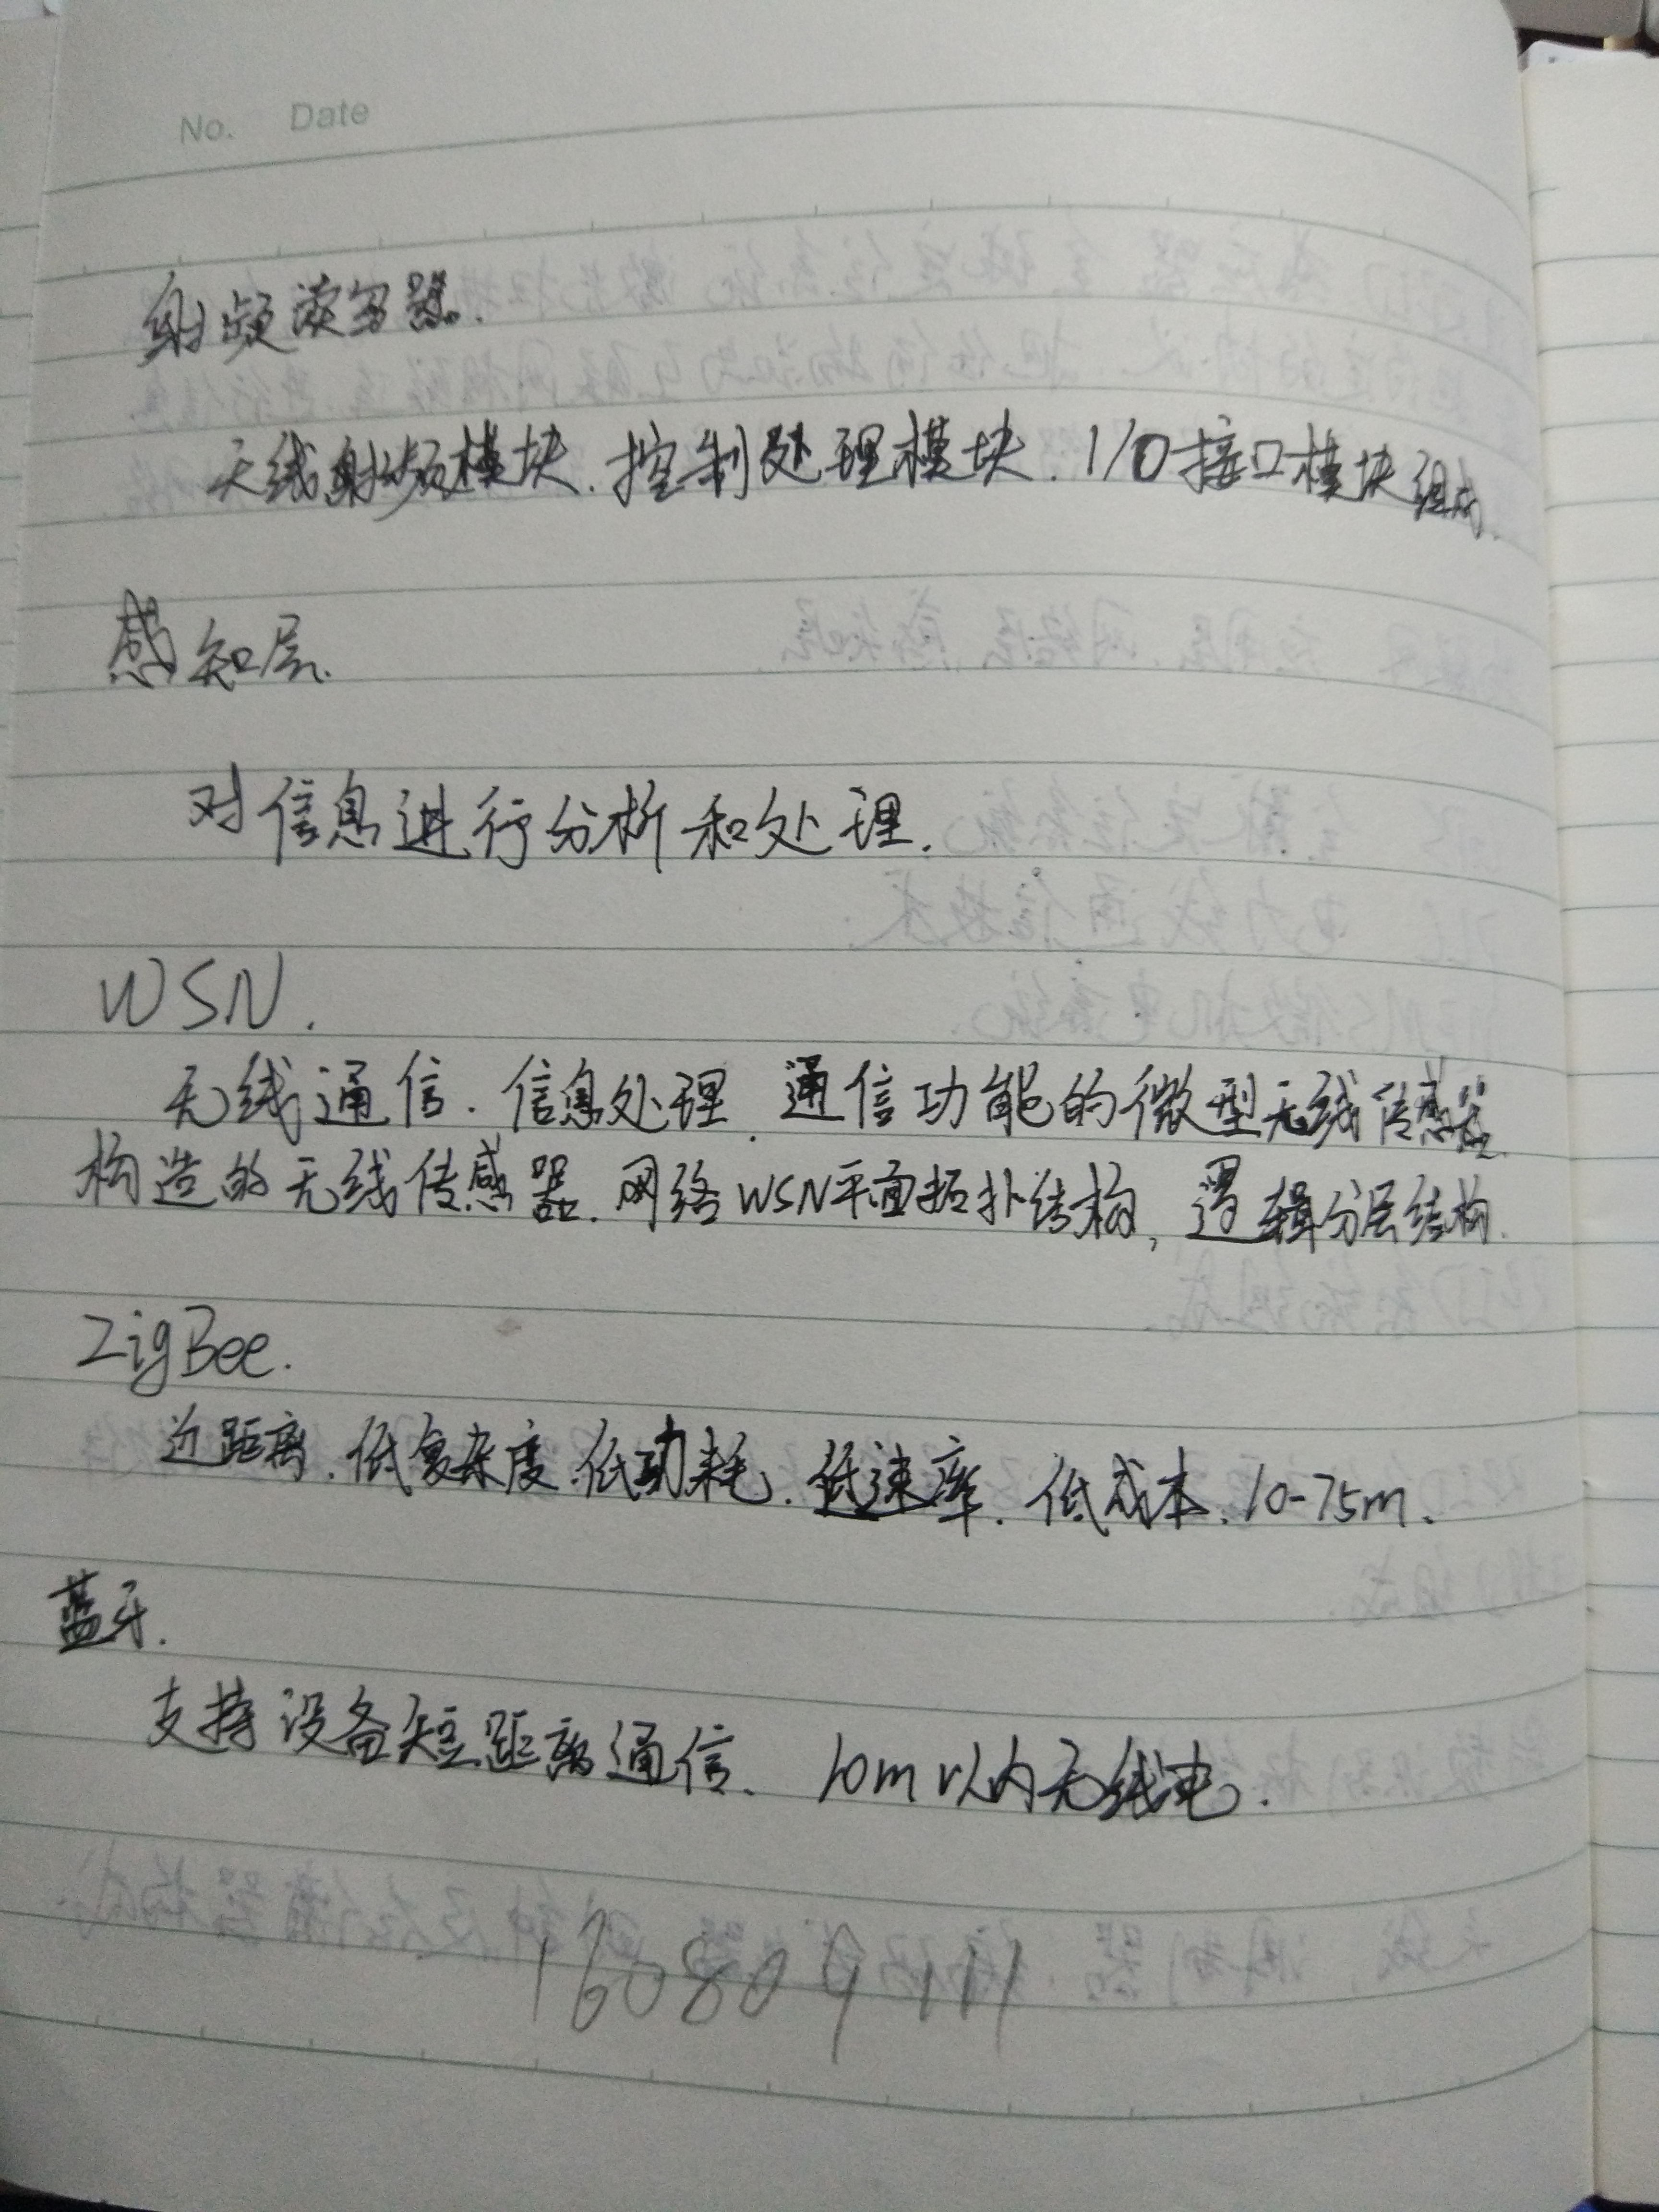 No. Date
射频读写器.
无线射频模块.控制处理模块.I/O接口模块组成.
感知层.
对信息进行分析和处理.
WSN.
无线通信.信息处理.通信功能的微型无线传感器
构造的无线传感器.网络WSN平面拓扑结构,逻辑分层结构.
ZigBee.
近距离.低复杂度.低功耗.低速率.低成本.10-75m.
蓝牙.
支持设备短距离通信. 10m以内无线电.
160809111